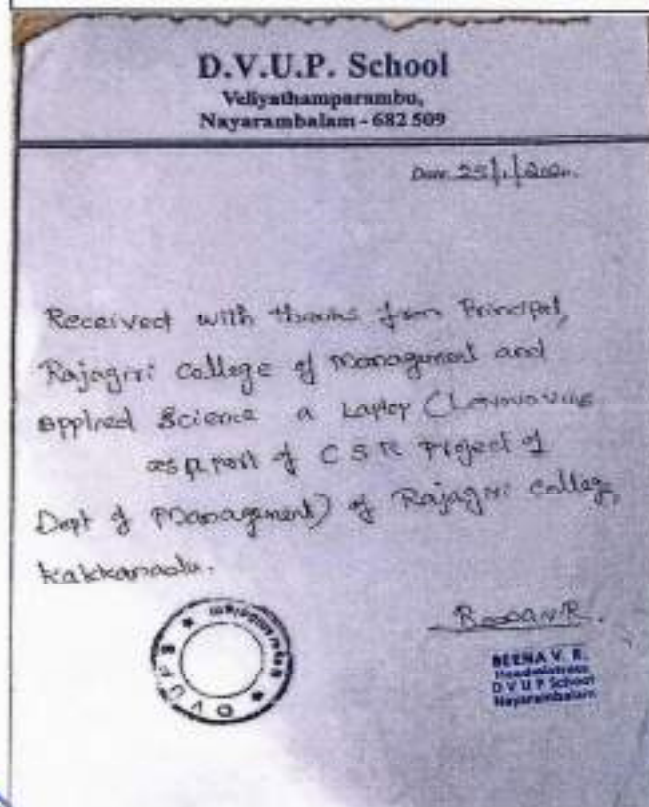 D.V.U.P. School
Veliyathamparambu,
Nayarambalam - 682 509
Date 25/1/2020.
Received with thanks from Principal,
Rajagiri College of Management and
Applied Science a Laptop (
as part of CSR Project of
Dept of Management) of Rajagiri College,
Kakkanadu.
Beena V.R.
BEENA V. R.
Headmistress
D V U P School
Nayarambalam
D V U P S